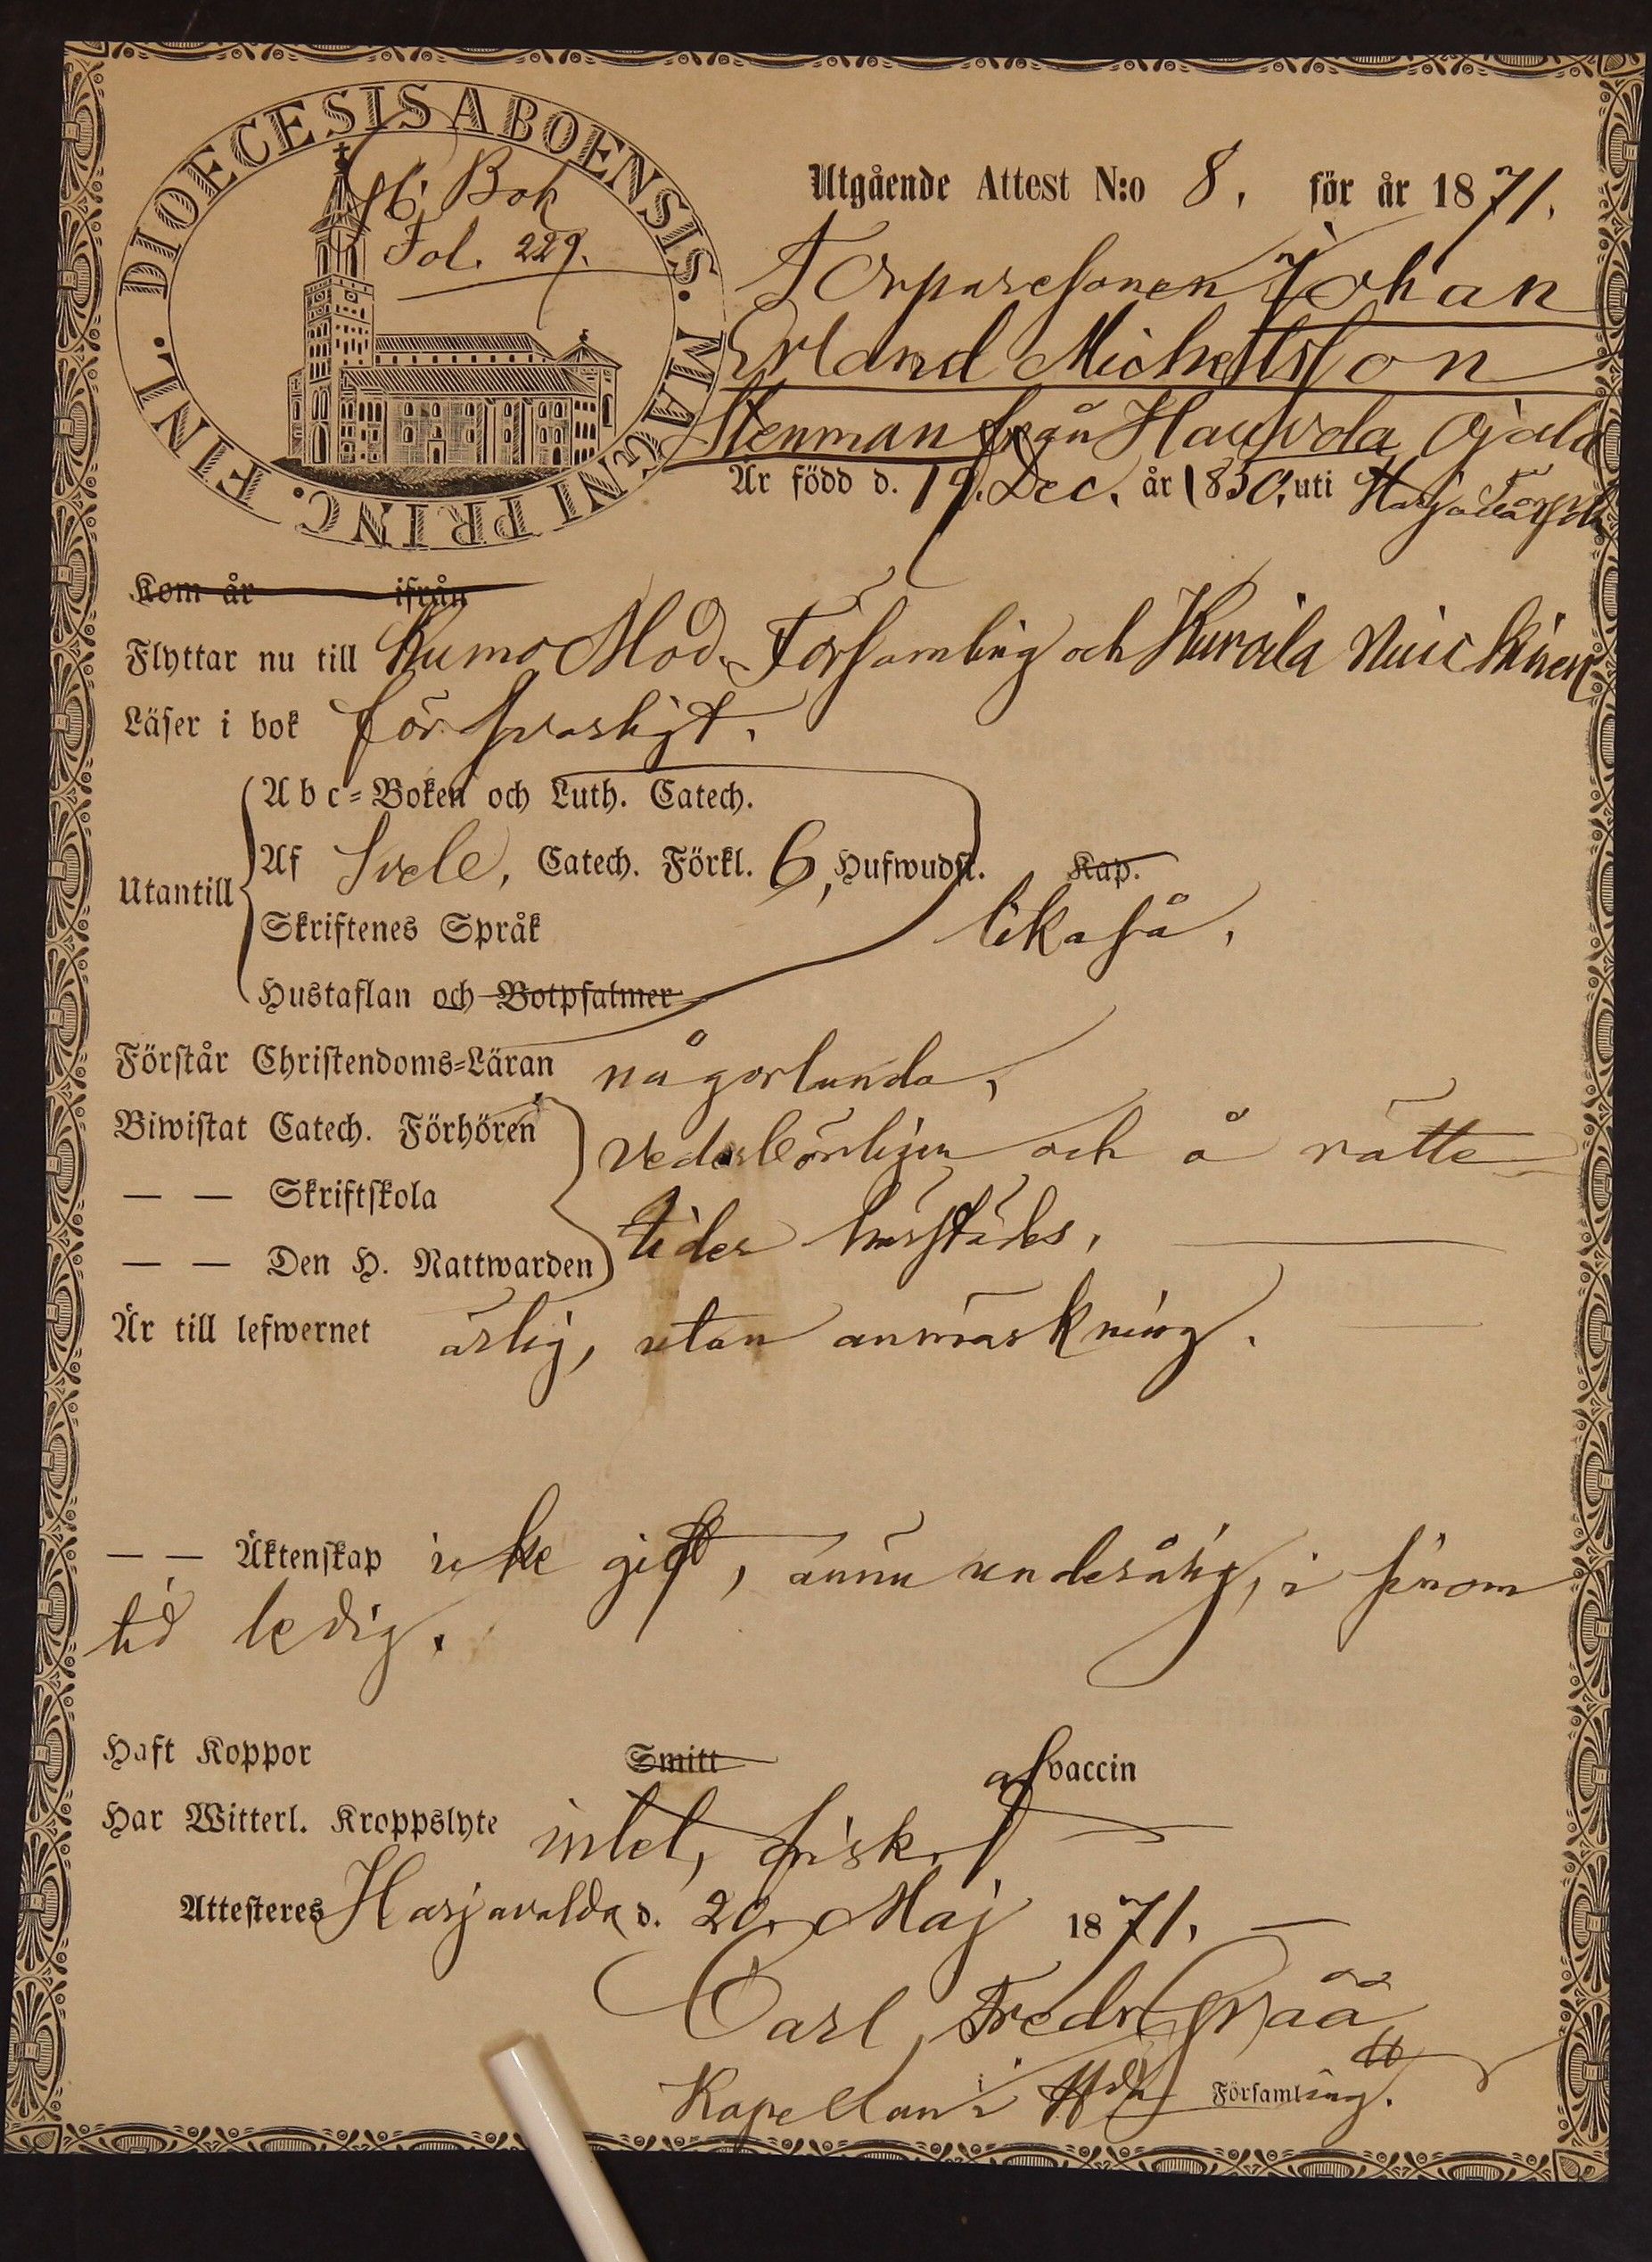 DIOECESIS ABOENSIS. MAGNI PRINC. FINL.
H. Bok
Fol. 229.
Utgående Attest N:o 8. för år 1871.
Torparesonen Johan
Erland Michelsson
Stenman från Ojala
Är född d. 19. Dec. år 1850, uti
Kom år ifrån
Flyttar nu till Kumo Mod. Församling och Kurvila
Läser i bok försvarligt.
Utantill
Abc-Boken och Luth. Catech.
Af Svebe, Catech. Förkl. 6, Hufwudst. Kap.
Skriftenes Språk likaså.
Hustaflan och Botpsalmer
Förstår Christendoms-Läran någorlunda,
Biwistat Catech. Förhören vederbörligen och å rätta
— — Skriftskola
— — Den H. Nattwarden tider härstädes,
Är till lefwernet ärlig, utan anmärkning.
— — Äktenskap icke gift, ännu underårig, i sinom
tid ledig.
Haft Koppor Smitt af vaccin
Har Witterl. Kroppslyte intet, frisk.
Attesteres Harjavalda d. 20. Maj 1871.
Carl Fredr Gråå
Kapellan i Hda Församling.